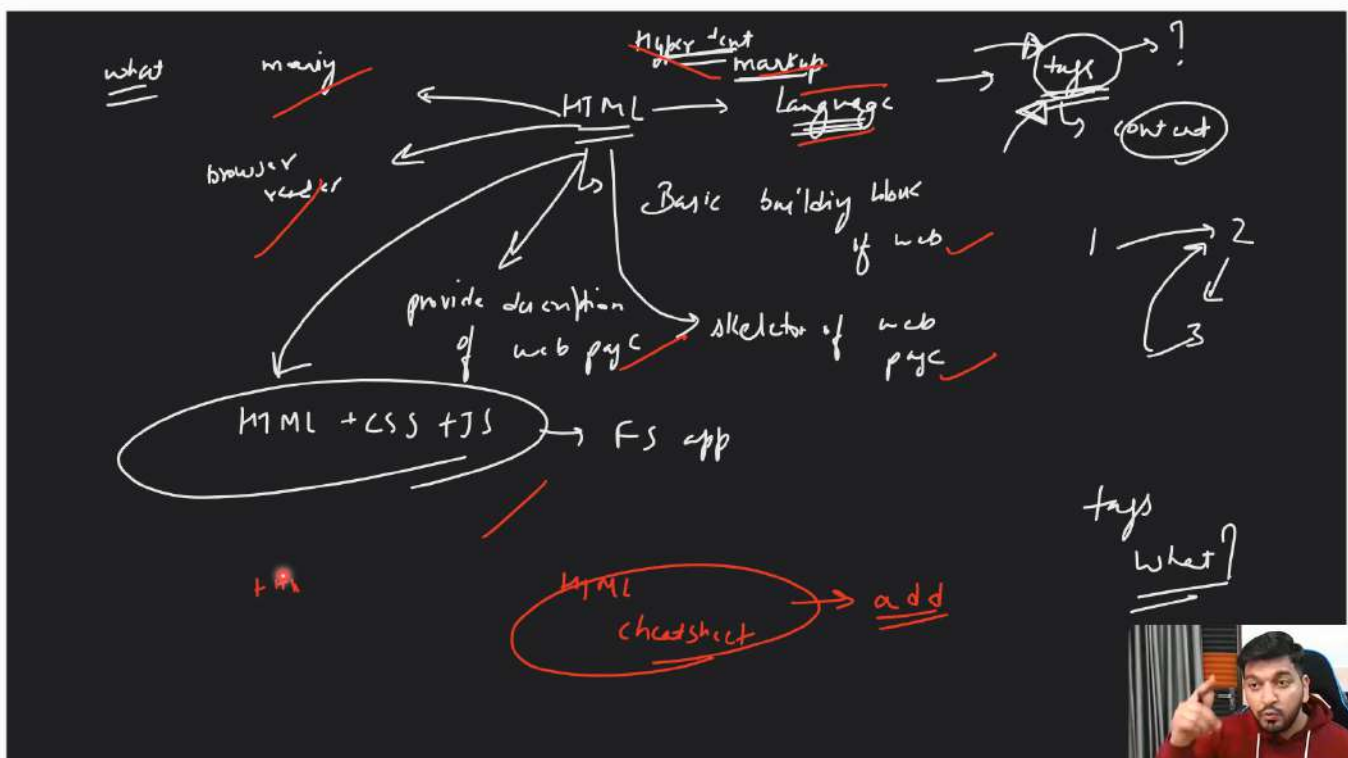 what
Hyper text
markup
Language
HTML
tags
?
content
browser
Basic building
of web
1
2
3
provide description
of web page
skeleton of web
page
HTML + CSS + JS
FS app
tags
what?
HTML
cheatsheet
add